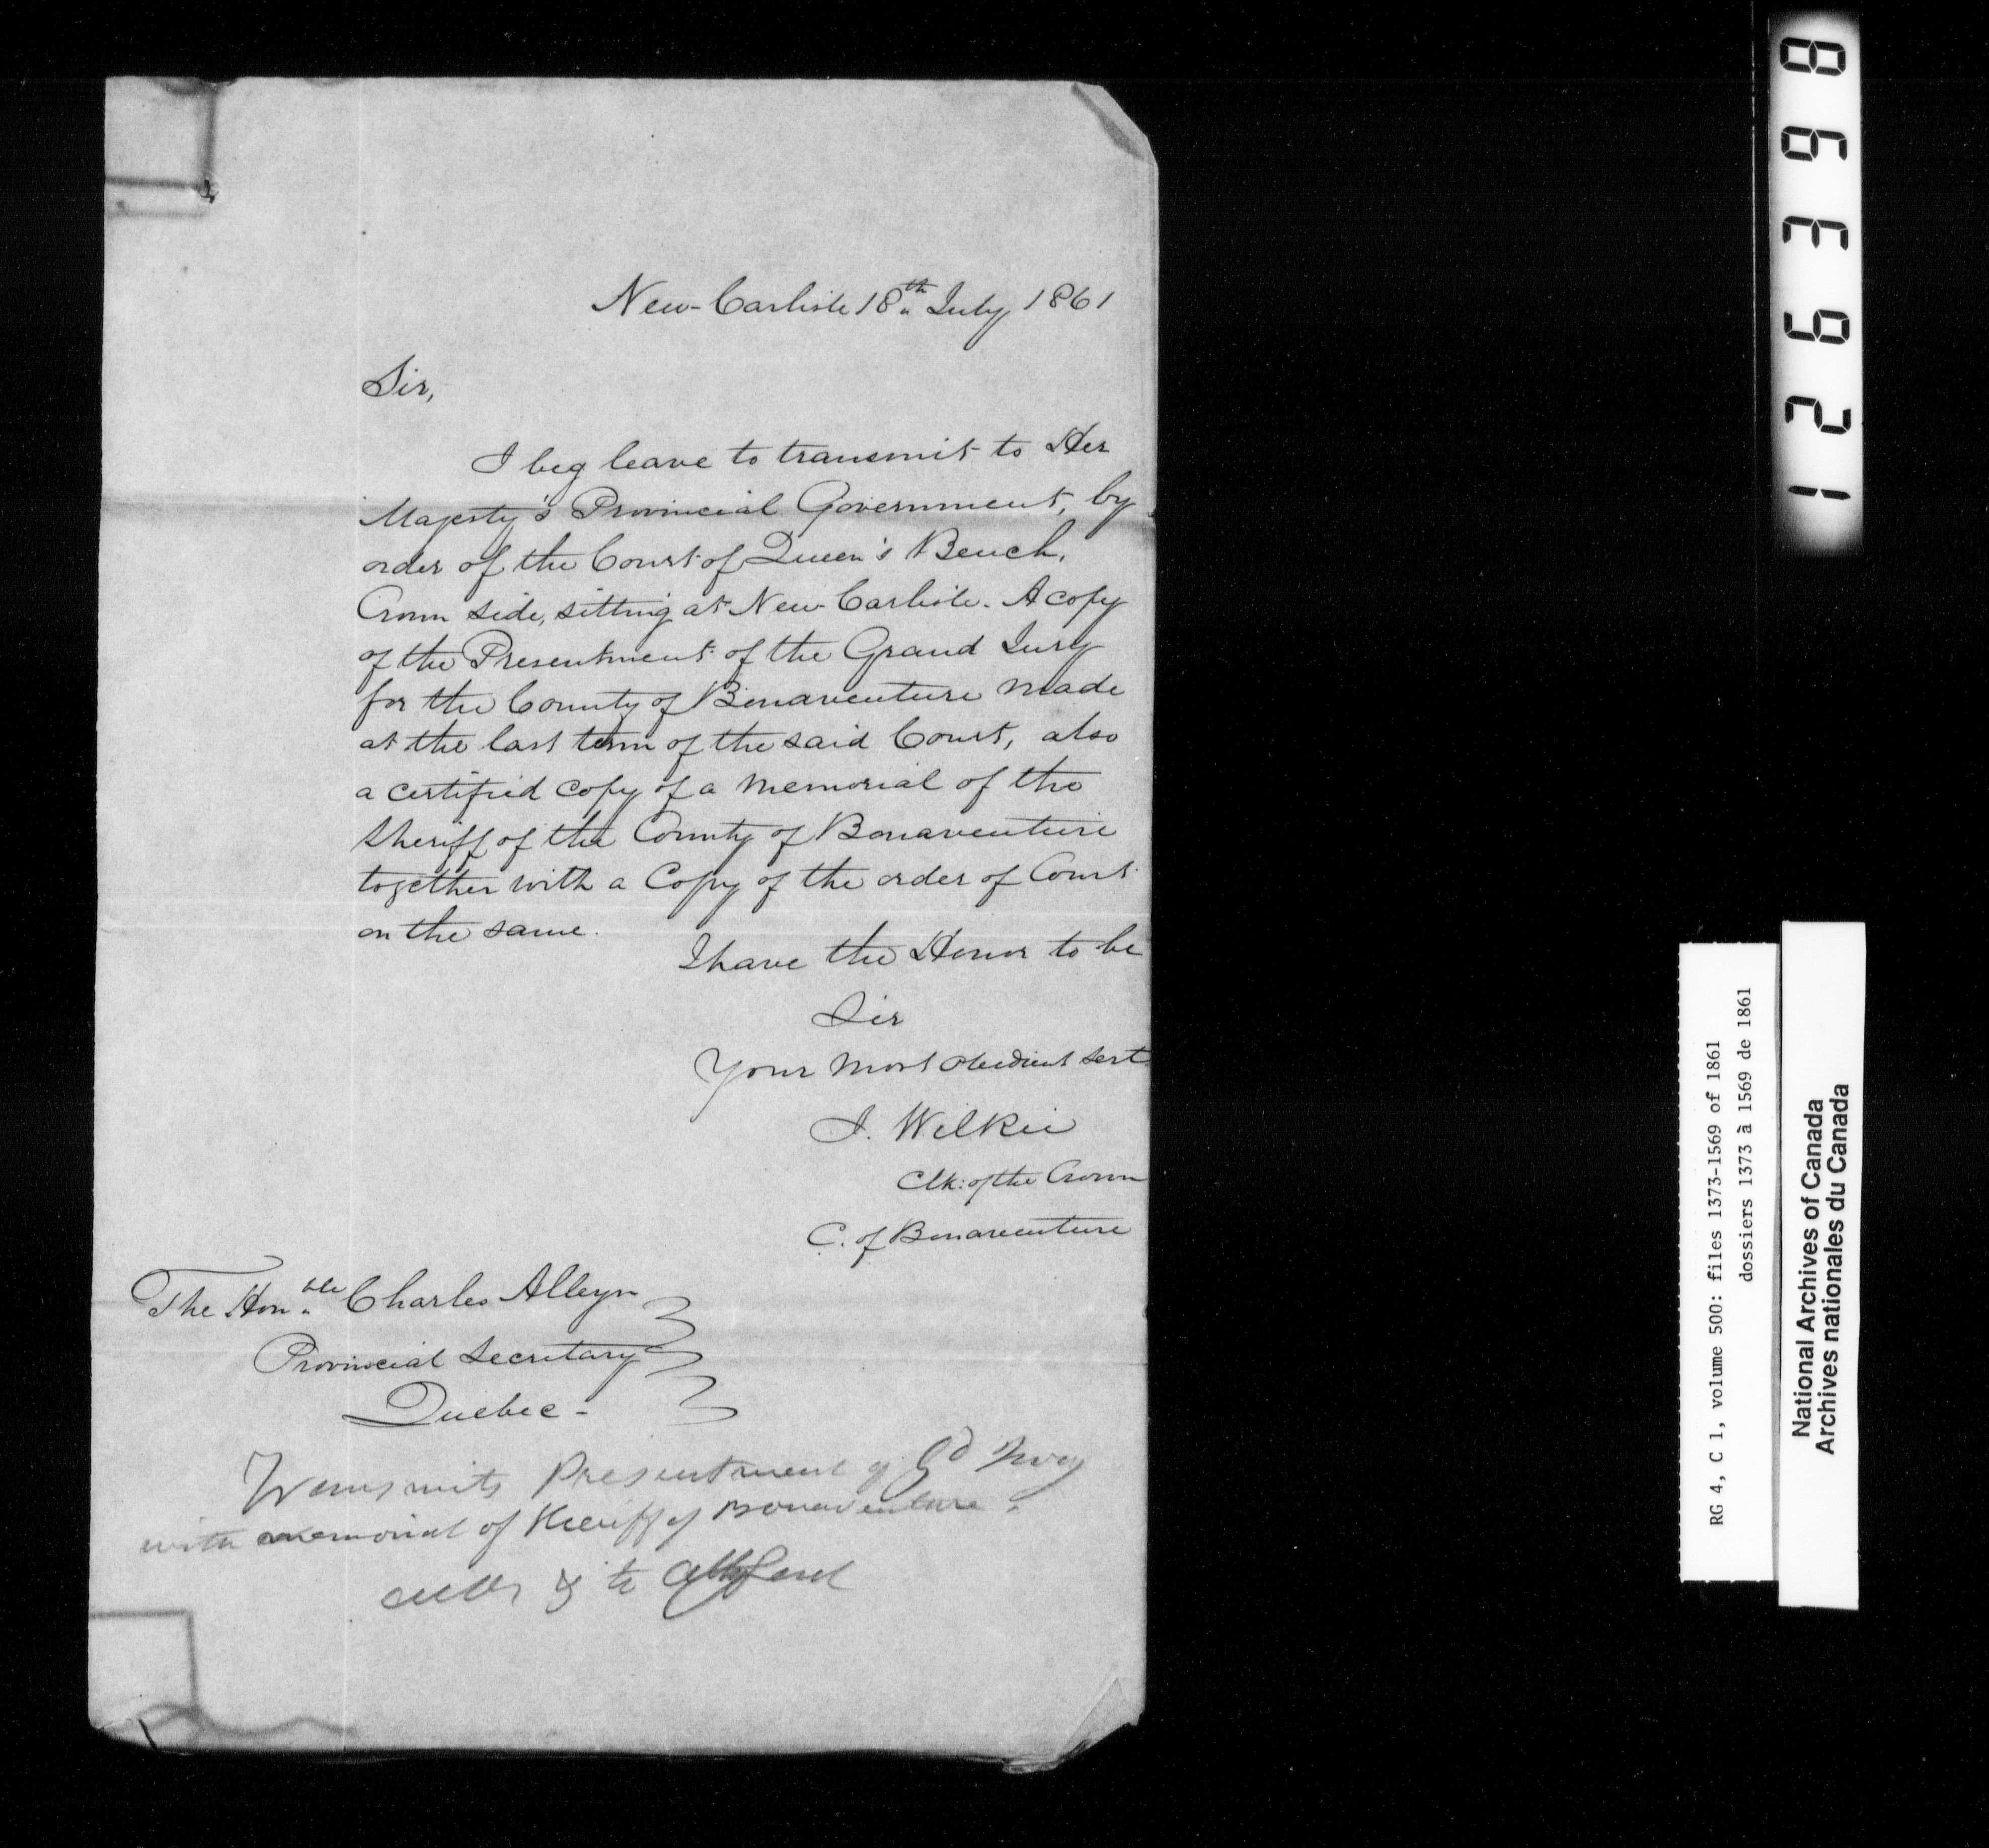 New-Carlisle 18th July 1861
Sir,
I beg leave to transmit to Her
Majesty's Provincial Government, by
order of the Court of Queen's Bench,
Crown side, sitting at New-Carlisle. A copy
of the Presentment of the Grand Jury
for the County of Bonaventure made
at the last term of the said Court, also
a certified copy of a memorial of the
Sheriff of the County of Bonaventure
together with a Copy of the order of Court
on the same.
I have the Honor to be
Sir
Your most obedient Sert
J. Wilkie
Clk: of the Crown
C. of Bonaventure
The Honble Charles Alleyn
Provincial Secretary
Quebec-
Transmits Presentment of Gd Jury
with memorial of Sheriff of Bonaventure.
& to
126398
RG 4, C 1, volume 500: files 1373-1569 of 1861
dossiers 1373 à 1569 de 1861
National Archives of Canada
Archives nationales du Canada